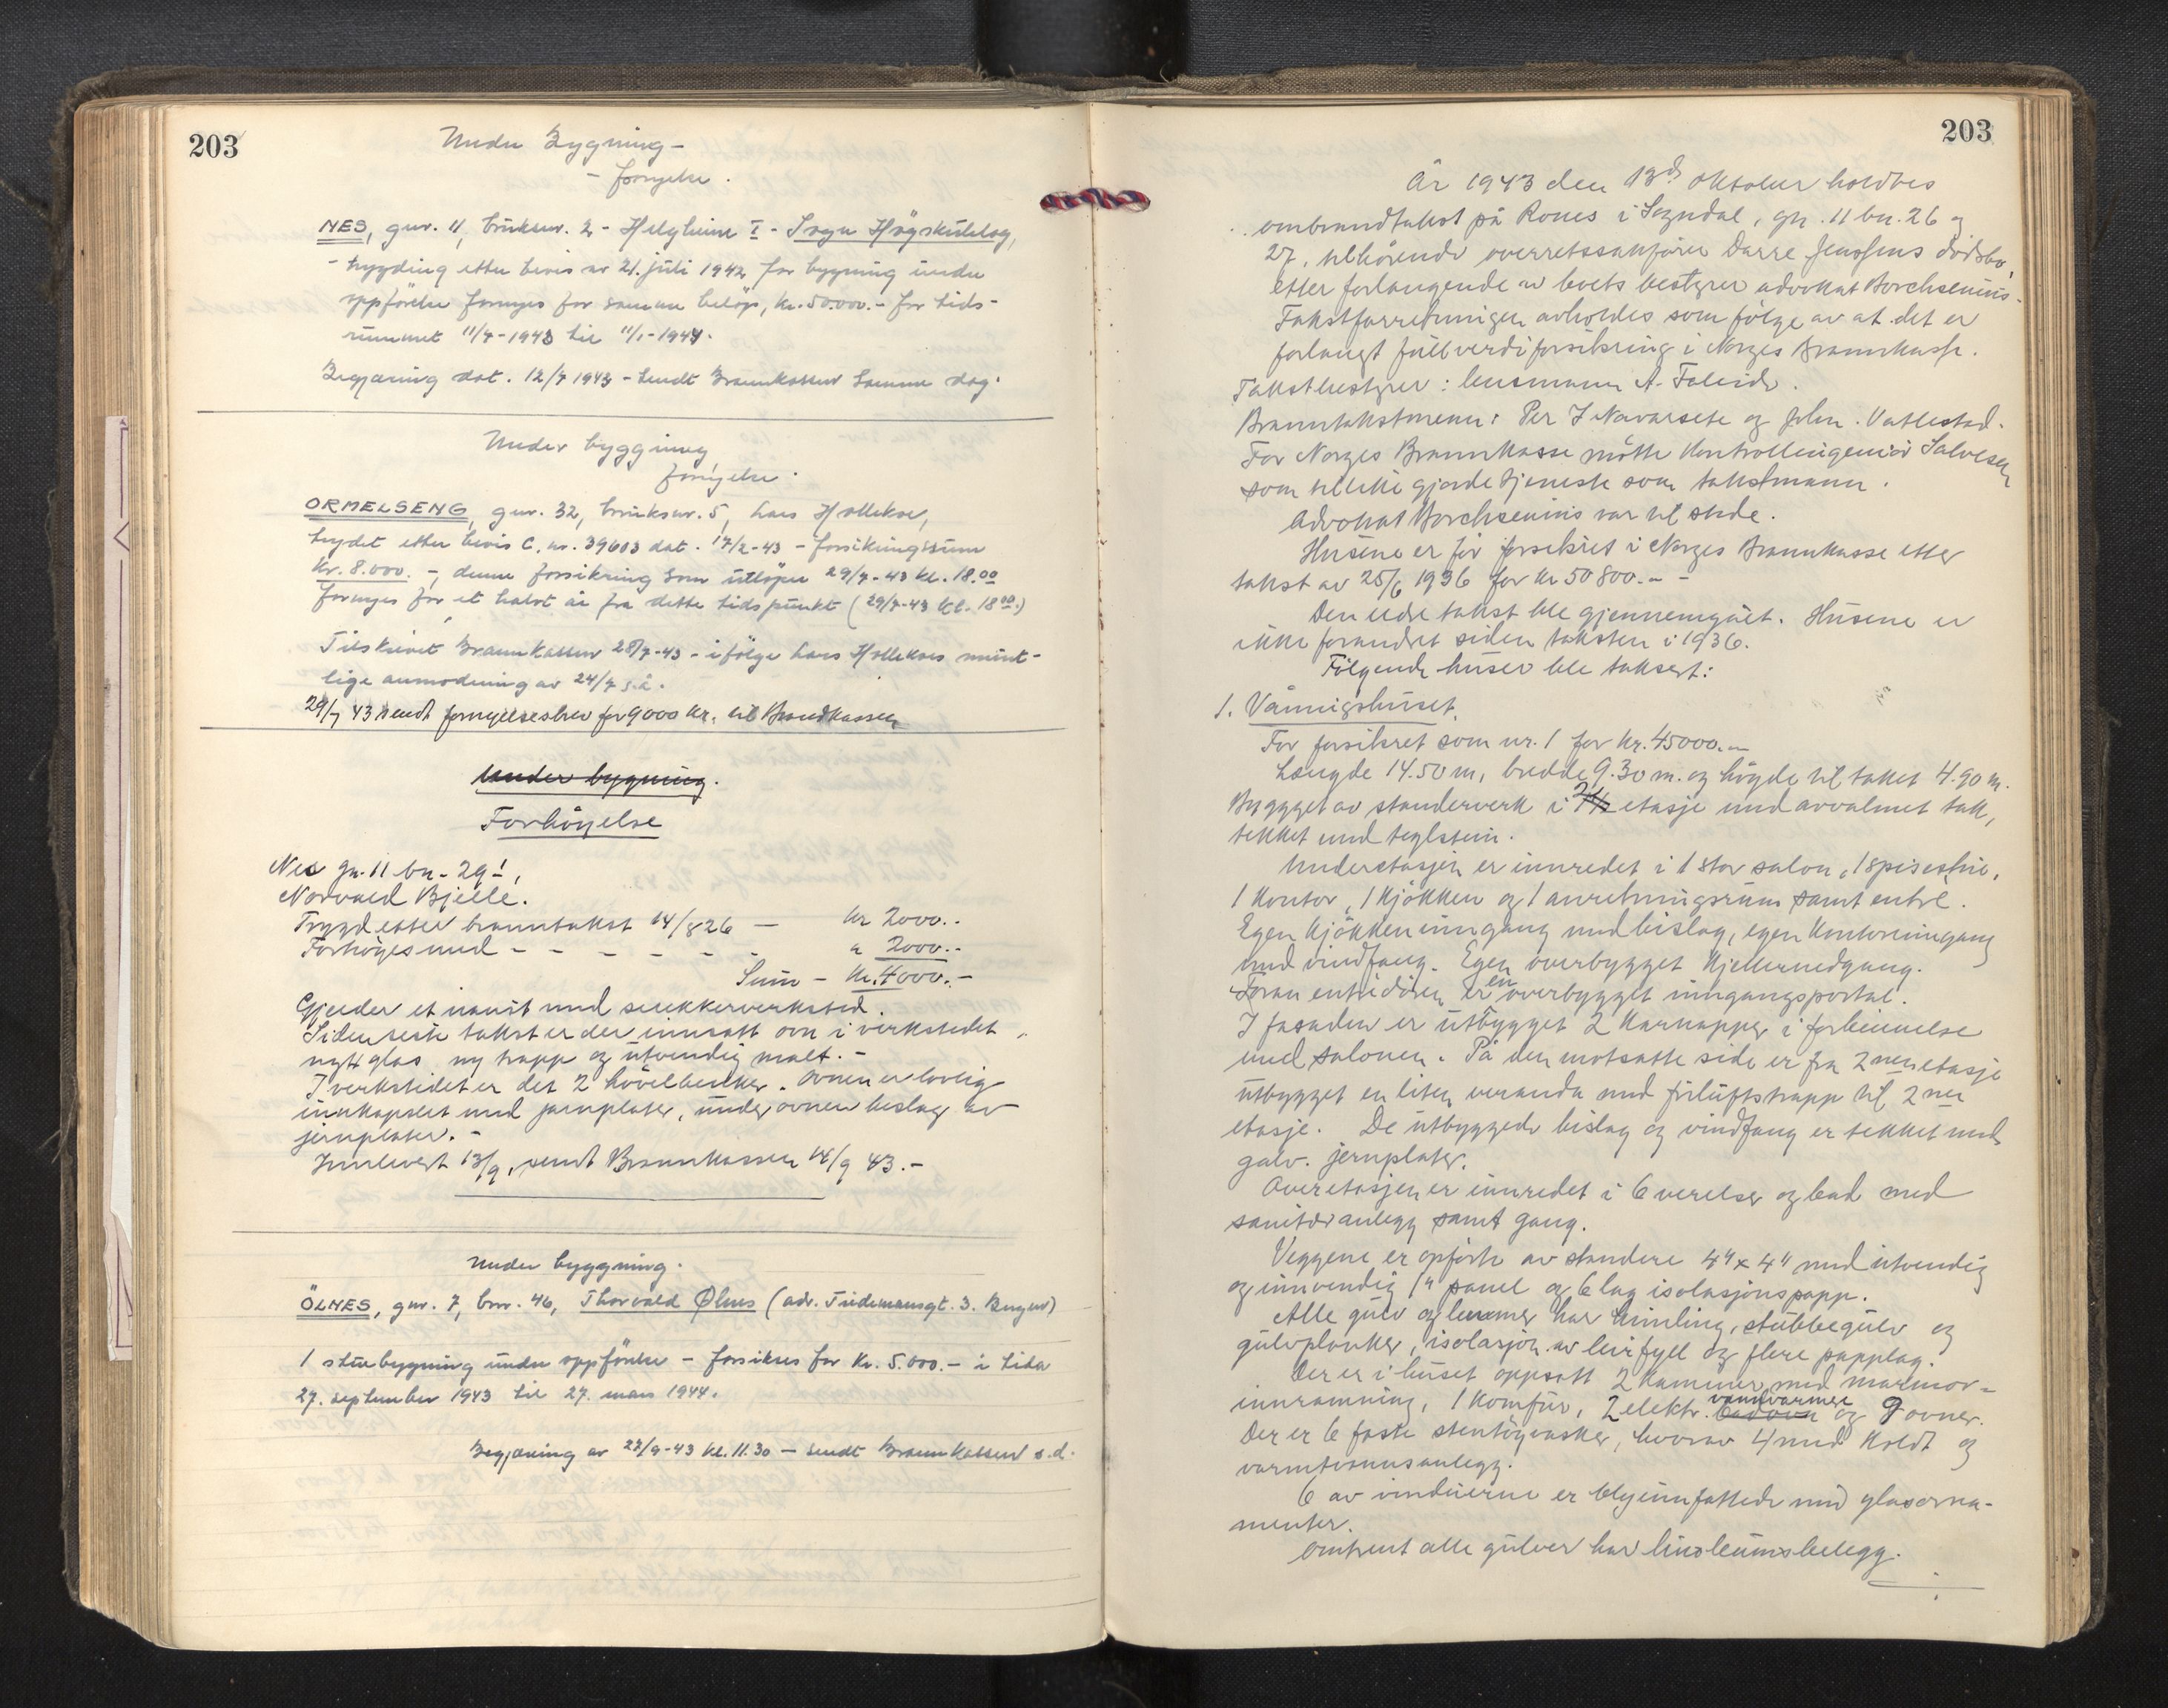 203
Under Bygning -
- fornyelse.
NES, gnr. 11, bruksnr. 2 - Helgheim I - Sogn Högskulelag,
- trygding etter bevis av 21. juli 1942 for bygning under
oppförelse fornyes for samme belöp, kr. 50.000.- for tids-
rummet 11/7-1943 til 11/1-1944.
Begjæring dat. 12/7 1943 - sendt Brannkassen samme dag.
Under byggning
fornyelse.
ORMELSENG, gnr. 32, bruksnr. 5, Lars Hollekve,
trydet etter bevis C. nr. 39603 dat. 17/2-43 - forsikringssum
Kr. 8.000.-, denne forsikring som utlöper 29/7-43 kl. 18.00
fornyes for et halvt år fra dette tidspunkt (29/7-43 kl. 18.00.)
Tilskrevet Brannkassen 28/7-43 - ifölge Lars Hollekves munt-
lige anmodning av 24/7 s.å.
29/7 43 sendt fornyelsesbrev for 9000 kr. til Brandkassen
Under bygning.
Forhöyelse
Nes gn. 11 bn. 29!,
Norvald Bjelle.
Trygd etter branntakst 14/8 26 — kr 2000.-
Forhöyes med - - - - - - " 2000.-
Sum - Kr. 4000.-
Gjelder et naust med snekkerverksted.
Siden siste takst er der innsatt ovn i verkstedet,
nytt glas, ny trapp og utvendig malt.-
I verkstedet er det 2 hövelbenker. Ovnen er lovlig
innkapslet med jernplater, under ovnen beslag av
jernplater.-
Innlevert 13/9, sendt Brannkassen 14/9 43.-
Under byggning.
ÖLNES, gnr. 7, bnr. 46, Thorvald Ølnes (adr. Tidemansgt. 3. Bergen)
1 stuebygning under oppförelse - forsikres for Kr. 5.000.- i tida
27. september 1943 til 27. mars 1944.
Begjæring av 27/9-43 kl. 11.30 — sendt Brannkassen s.d.
203
År 1943 den 13de oktober holdtes
ombrandtakst på Rones i Sogndal, gn. 11 bn. 26 og
27, tilhörende overretssakförer Darre Jenssens dödsbo,
etter forlangende av boets bestyrer advokat Borchsenius.
Takstforretningen avholdes som fölge av at det er
forlangt fullverdiforsikring i Norges Brannkasse.
Takstbestyrer: lensmann A. Faleide.
Branntakstmenn: Per J Navarsete og John. Vatlestad.
For Norges Brannkasse mötte kontrollingeniör Salvesen
som tillike gjorde tjeneste som takstmann.
Advokat Borchsenius var til stede.
Husene er för forsikret i Norges Brannkasse etter
takst av 25/6 1936 for kr 50800.- -
Den eldre takst ble gjennemgått. Husene er
ikke forandret siden taksten i 1936.
Fölgende huser ble taksert:
1. Våningshuset.
För forsikret som nr. 1 for kr. 45000.-
Længde 14.50 m, bredde 9.30 m. og höyde til taket 4.90 m.
Bygget av standerverk i 2 etasje med avvalmet tak,
tekket med teglstein.
Underetasjen er innredet i 1 stor salon, 1 spisestue,
1 kontor, 1 kjökken og 1 anretningsrum samt entre.
Egen kjökkeninngang med bislag, egen kontorinngang
med vindfang. Egen overbygget kjellernedgang.
Foran entredören er en overbygget inngangsportal.
I fasaden er utbygget 2 karnapper i forbinnelse
med salonen. På den motsatte side er fra 2nen etasje
utbygget en liten veranda med friluftstrapp til 2nen
etasje. De utbyggede bislag og vindfang er tekket med
galv. jernplater.
Overetasjen er innredet i 6 værelser og bad med
sanitæranlegg samt gang.
Veggene er opförte av standere 4" x 4" med utvendig
og innvendig 1" panel og 6 lag isolasjonspapp.
Alle gulv og lemmer har himling, stubbegulv og
gulvplanker, isolasjon av leirfyll og flere papplag.
Der er i huset oppsatt 2 kaminer med marmor-
innramning, 1 komfur, 2 elektr. vannvarmere og 9 ovner.
Der er 6 faste stentöyvasker, hvorav 4 med koldt og
varmtvannsanlegg.
6 av vinduerne er blyinnfattede med glasorna-
menter.
Omtrent alle gulver har linoleumsbelegg.